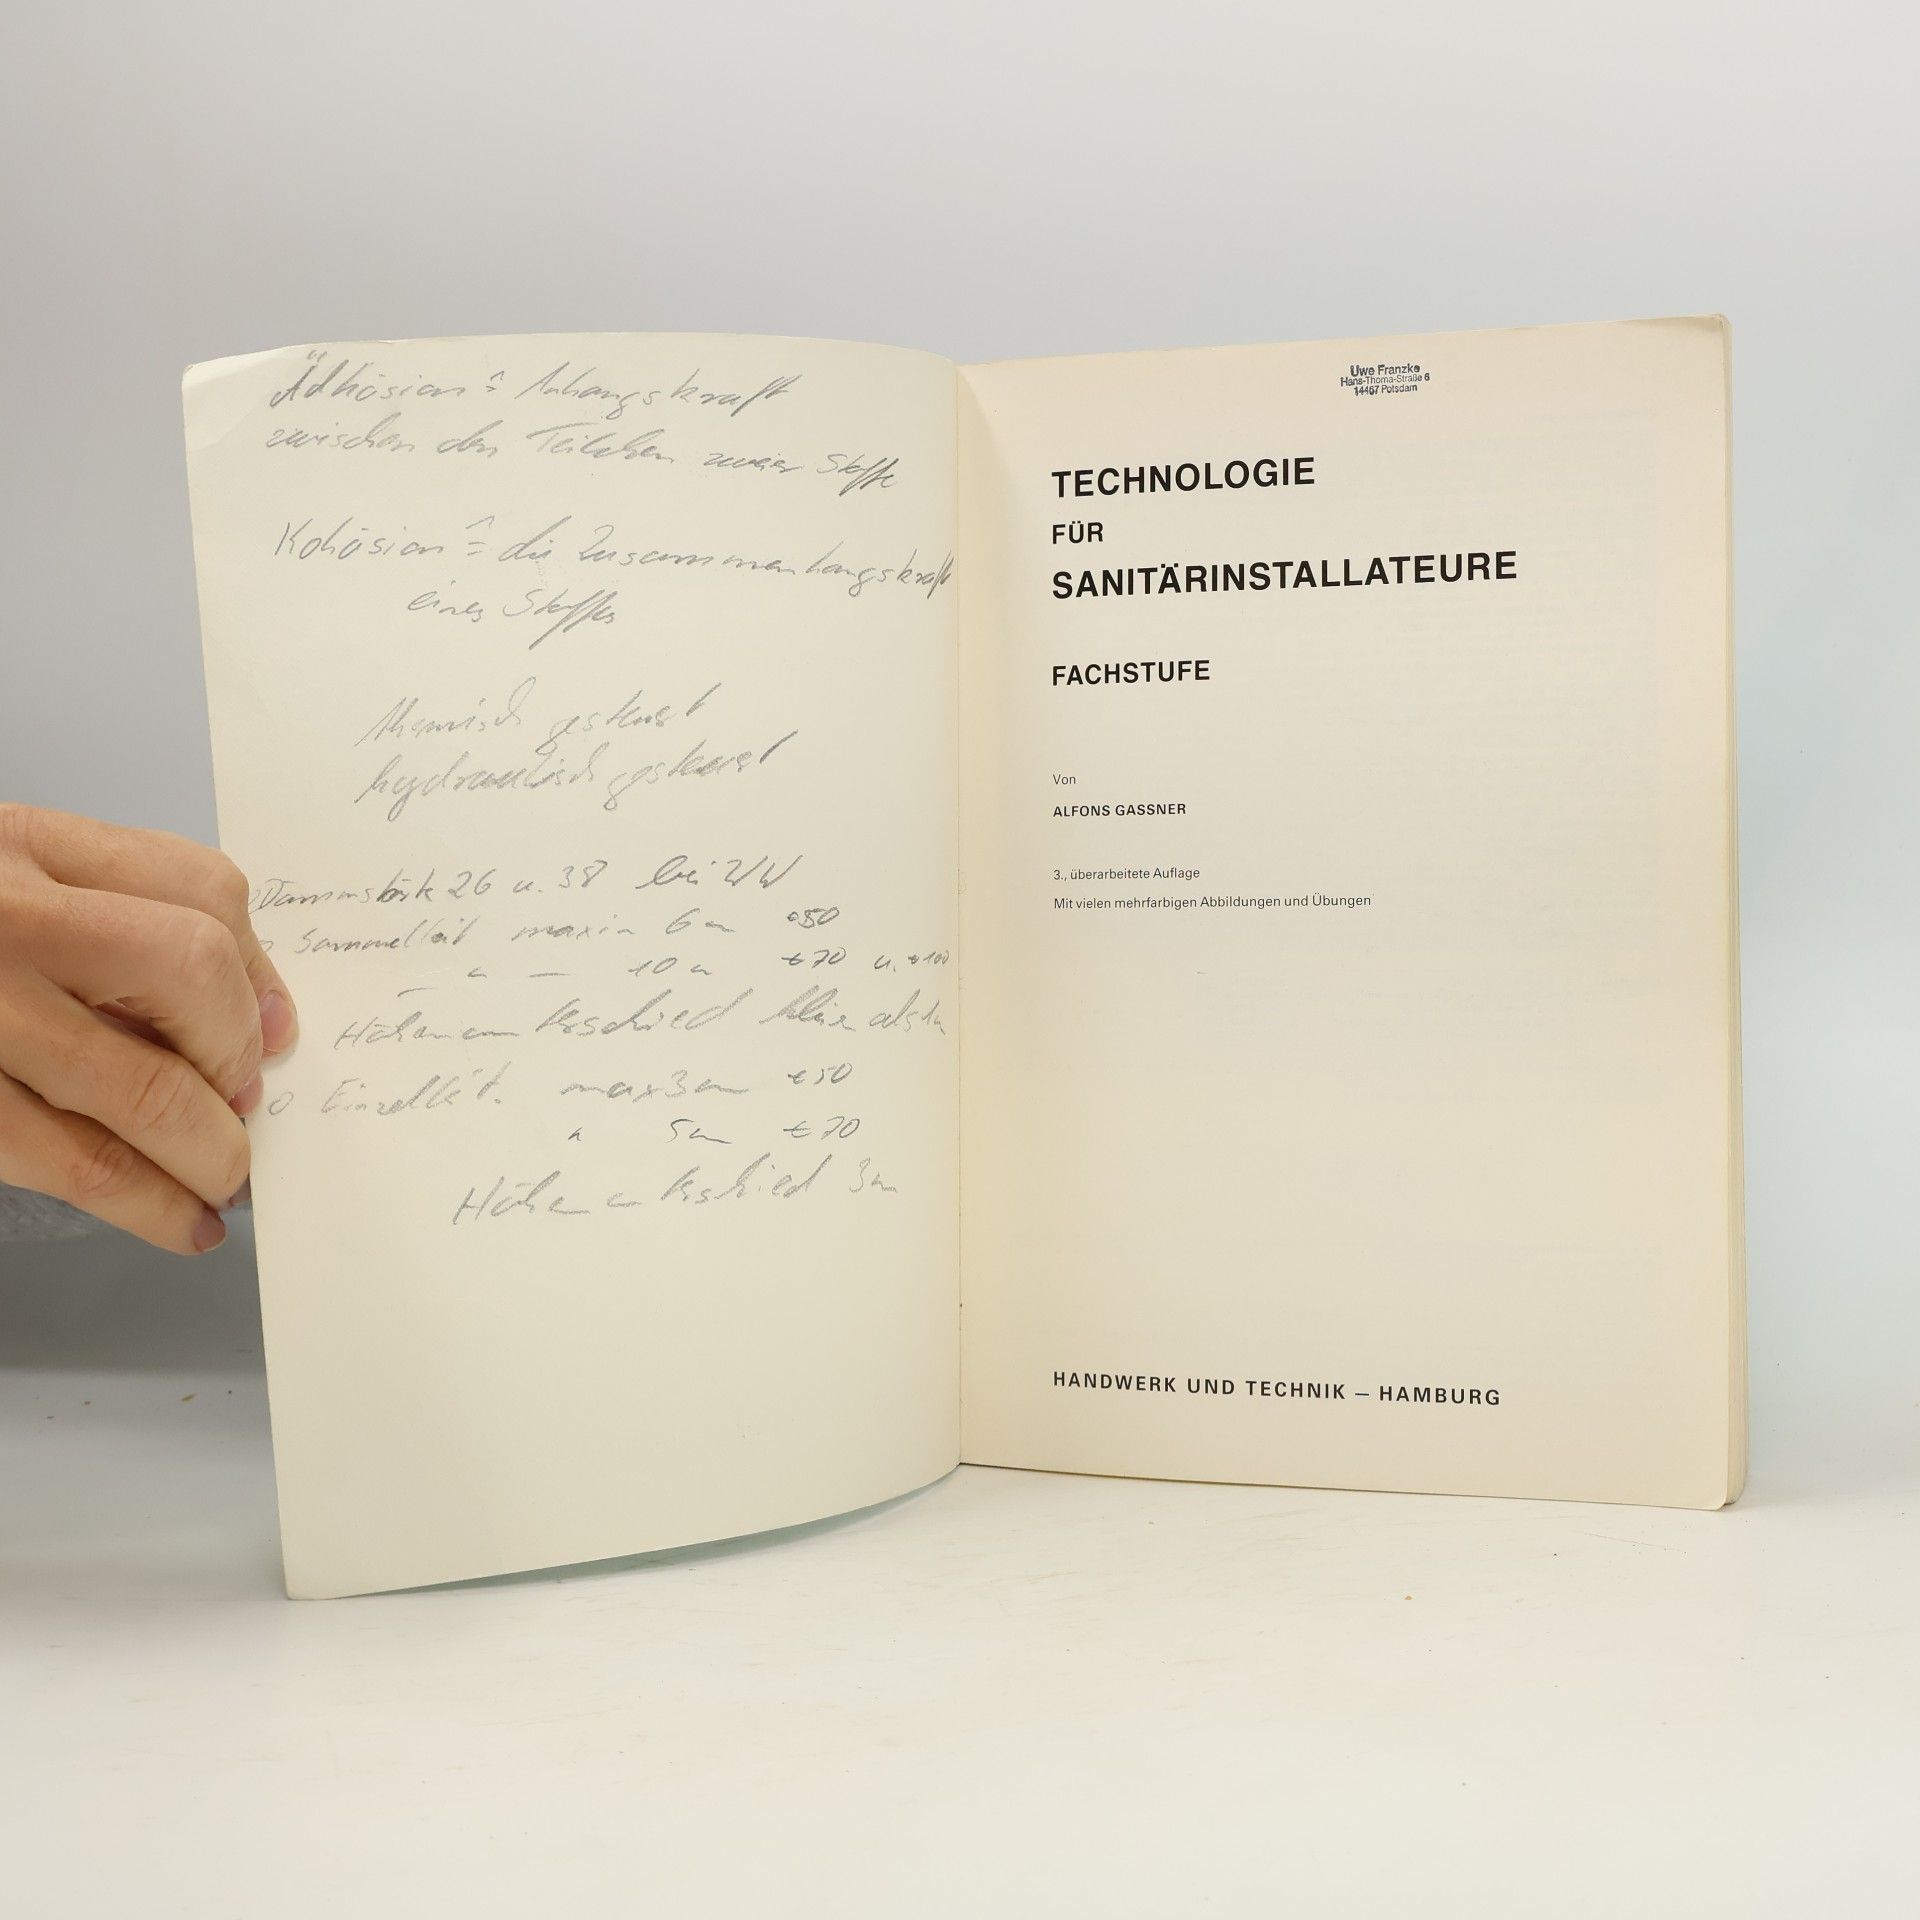 Ädhäsion ≙ Anhangskraft
zwischen den Teilchen zweier Stoffe
Kohäsion ≙ die Zusammenhangskraft
eines Stoffes
thermisch gesteuert
hydraulisch gesteuert
Dämmstärke 26 u. 38 bei WW
Sammelleit maxim 6m 50
10 70 u. 100
Höhenunterschied kleiner als 1m
o Einzelleit. max 3m 50
" 5m 70
Höhenunterschied 3m
Uwe Franzke
Hans-Thoma-Straße 6
14467 Potsdam
TECHNOLOGIE
FÜR
SANITÄRINSTALLATEURE
FACHSTUFE
Von
ALFONS GASSNER
3., überarbeitete Auflage
Mit vielen mehrfarbigen Abbildungen und Übungen
HANDWERK UND TECHNIK – HAMBURG